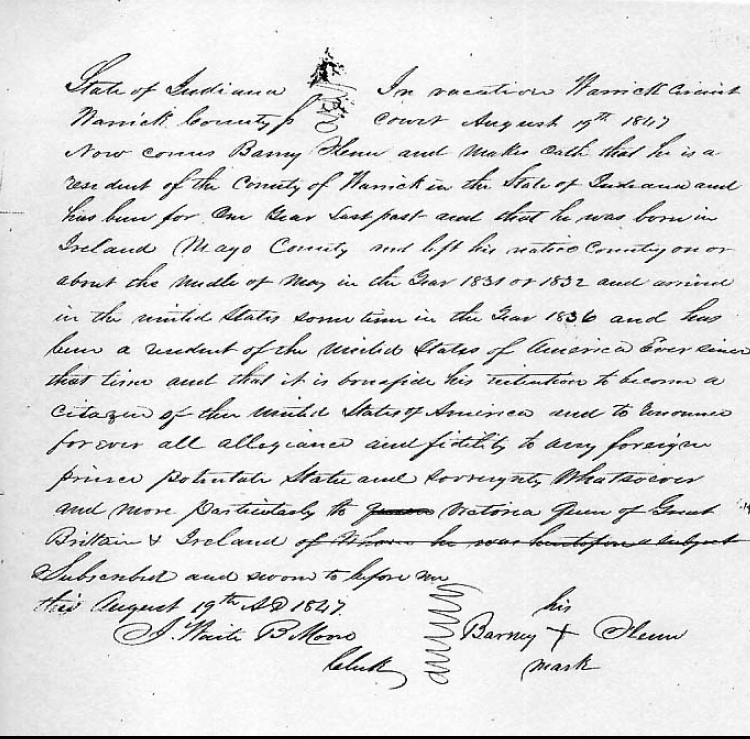 State of Indiana In vacation Warrick Circuit
Warrick County Court August 19th 1847
Now comes Barny and makes oath that he is a
resident of the County of Warrick in the State of Indiana and
has been for One Year Last past and that he was born in
Ireland Mayo County and left his native County on or
about the midle of May in the Year 1831 or 1832 and arrived
in the united States some time in the Year 1836 and has
been a resident of the United States of America Ever since
that time and that it is bonafide his intention to become a
Citazen of the united States of America and to renounce
forever all allegiance and fidility to any foreign
prince potentate State and sovreignty Whatsoever
and more particularly to Victoria Queen of Great
Brittain & Ireland of Whom he was heretofore a subject
Subscribed and sworn to before me
this August 19th AD 1847. his
B Moore Barney +
Clerk mark